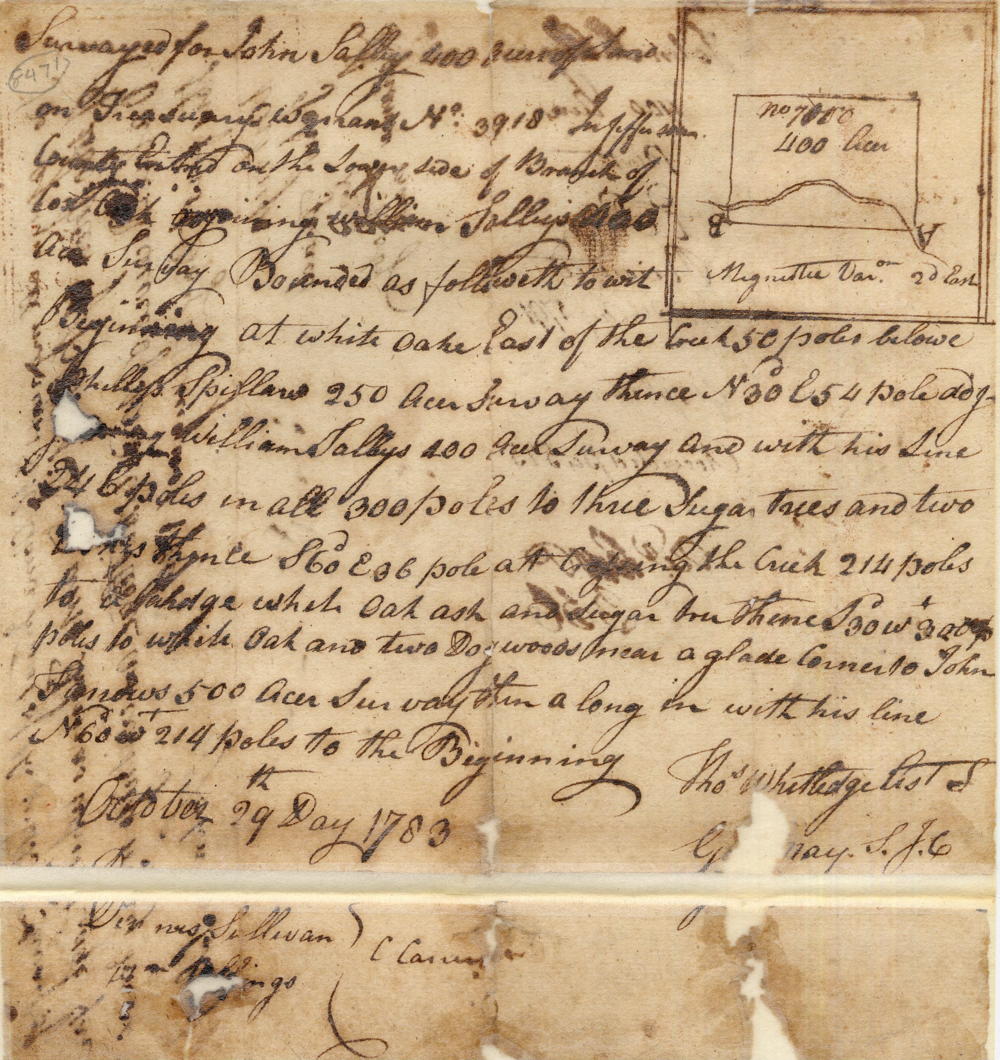 Survayed for John Salley 400 Acers of Land
8471
on Treasurary Warrant No. 3918 In Jefferson
County Entred on the Lower side of Branch of
Cox William Salleys 400
Acer Survay Bounded as followeth to wit
Beginning at white Oake East of the Creek 50 poles belowe
Phillep Spillars 250 Acer Survay thence N30E 54 pole adj-
William Salleys 400 Acer Survay and with his Line
246 poles in all 300 poles to three Sugar trees and two
thence S60E 36 pole at Crossing the Creek 214 poles
to white Oak ash and Sugar tree thence S30W 300
poles to white Oak and two Dogwoods near a glade Corner to John
500 Acer Survay then a long in with his line
N60W 214 poles to the Beginning
October 29th Day 1783
Thos. Whitledge asst S
may. S. J. C
Sullivan
C Carr
no 7000
400 Acer
B
A
Magnettic Varon. 2d East